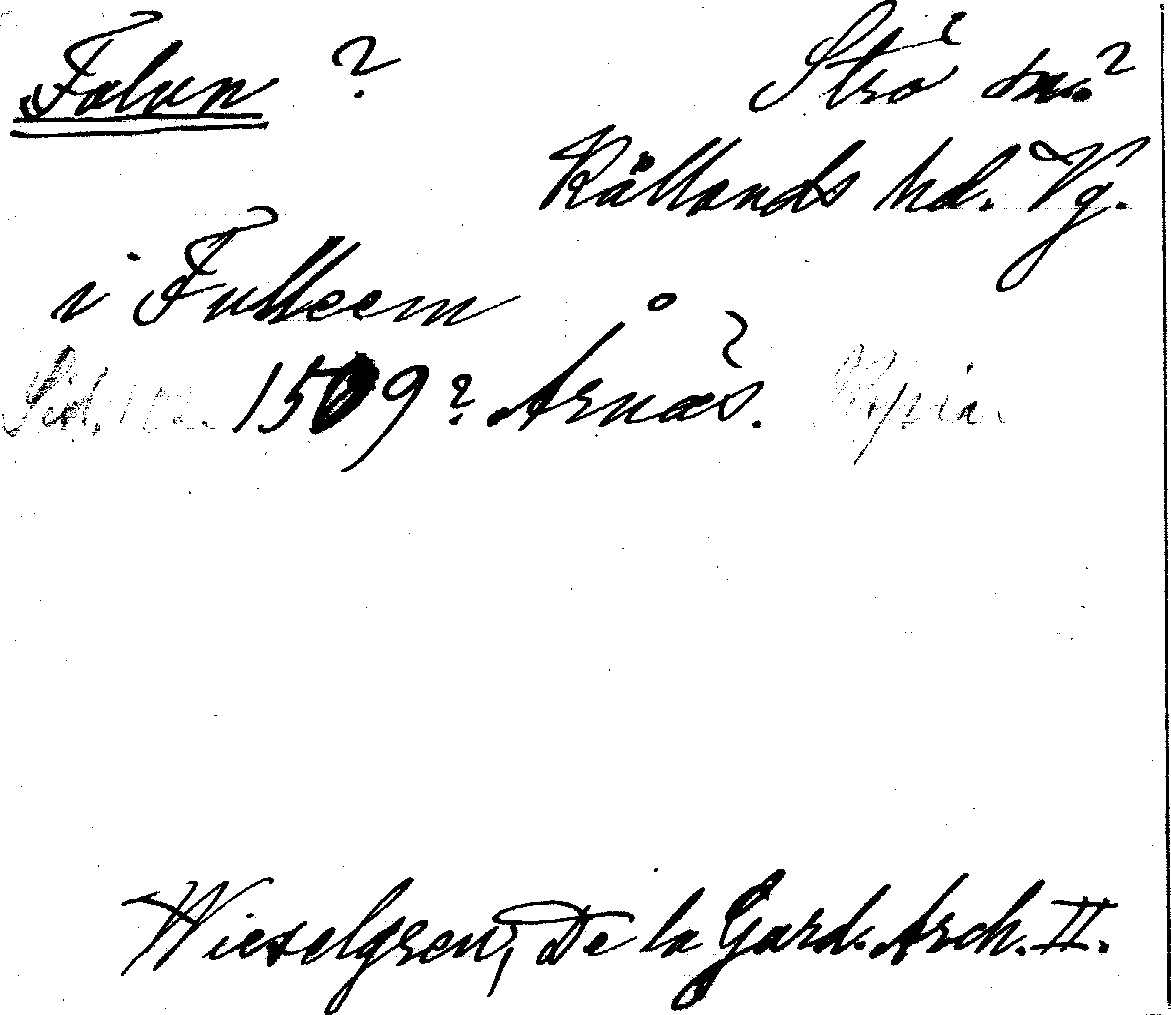 Falun ? Strö sn.?
Kållands hd. Vg.
i Fulleem
Sid. 102. 1509? Årnäs. Kopia.
Wieselgren, De la Gard. Arch. II.